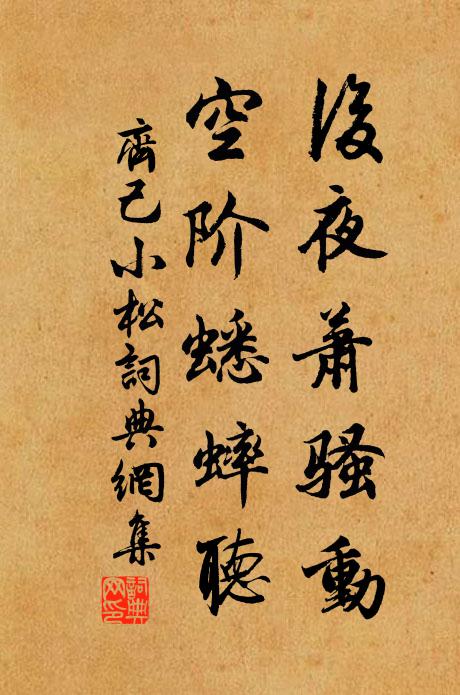 後夜蕭骚動
空阶蟋蟀聽
齊己小松詞典網集
詞典网印